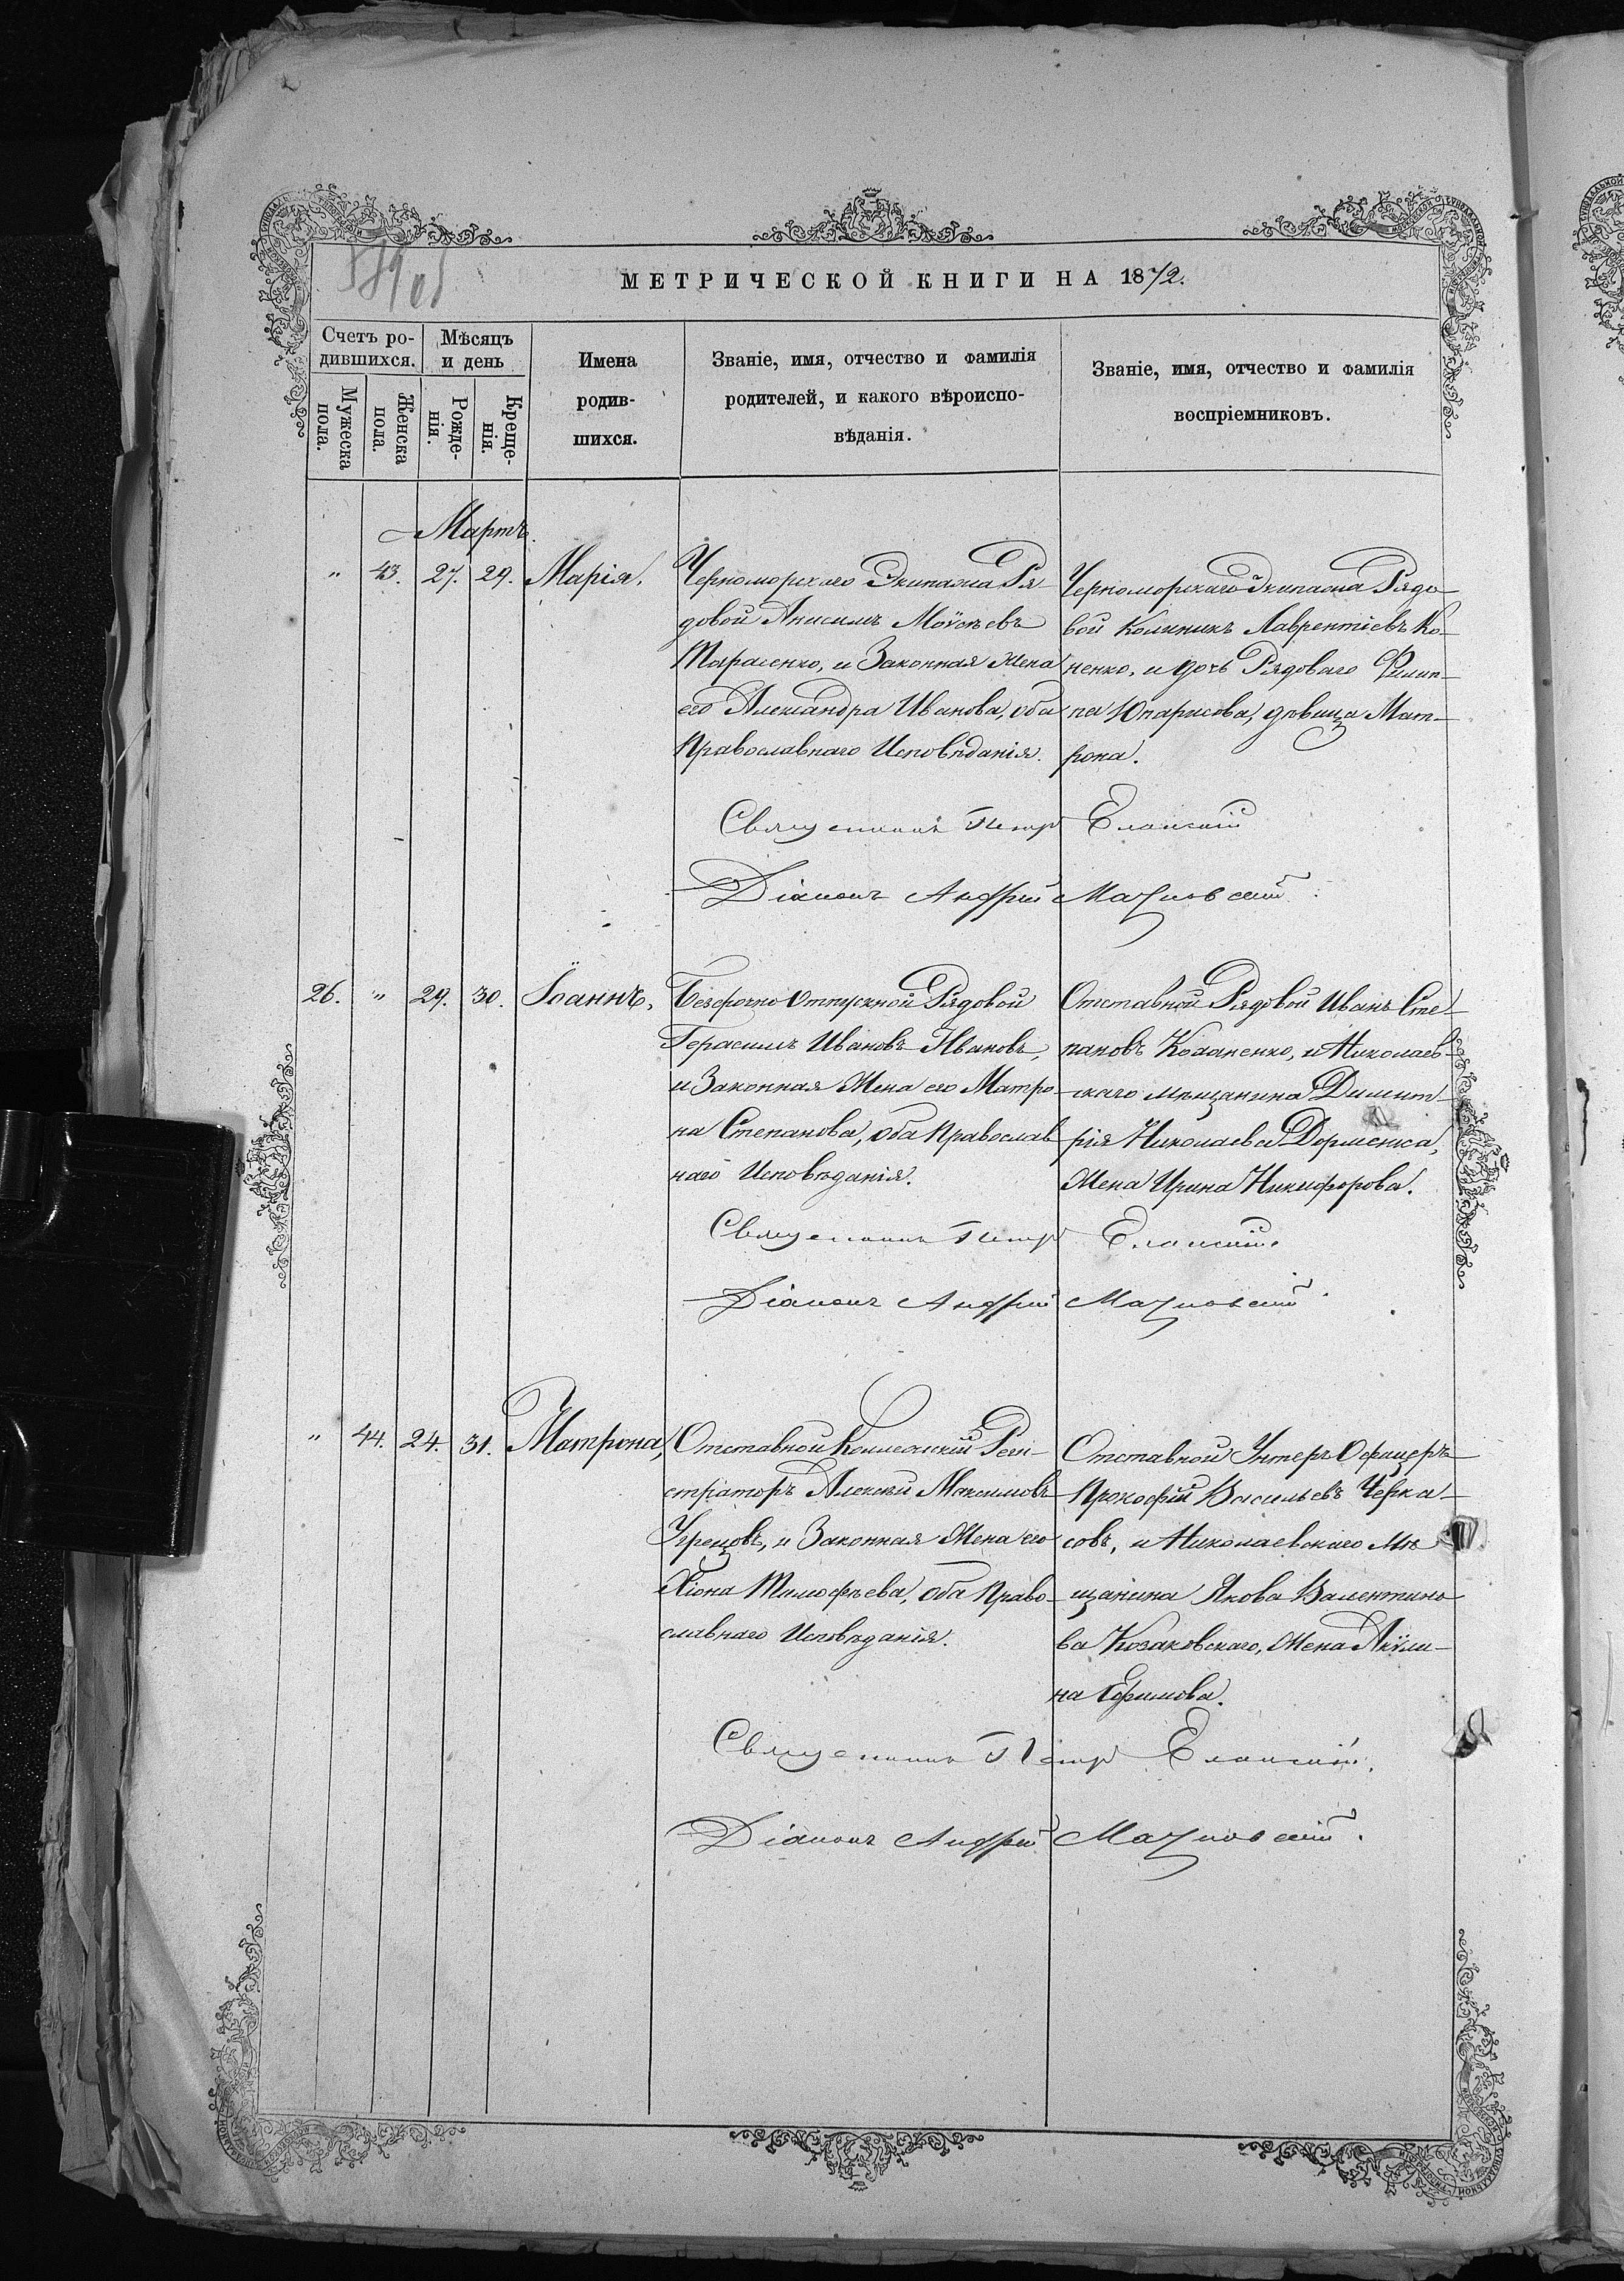 МЕТРИЧЕСКОЙ КНИГИ НА 1872.
Счетъ ро-
дившихся.
Мѣсяцъ
и день
Имена
родив-
шихся.
Званіе, имя, отчество и фамилія
родителей, и какого вѣроиспо-
вѣданія.
Званіе, имя, отчество и фамилія
воспріемниковъ.
Мужеска
пола.
Женска
пола.
Рожде-
нія.
Креще-
нія.
Мартъ.
" 43. 27. 29. Марія,
Черноморскаго Экипажа Ря-
довой Анисимъ Моѵсѣевъ
Тарасенко, и Законная Жена
его Александра Иванова, оба
Православнаго Исповѣданія.
Черноморскаго Экипажа Рядо-
вой Калиникъ Лаврентіевъ Ко-
ненко, и дочь Рядоваго Филип-
па Юпарисова, дѣвица Мат-
рона.
Священникъ Петръ Еланскій
Діаконъ Андрей
26. " 29. 30. Іоаннъ,
Безсрочно Отпускной Рядовой
Герасимъ Ивановъ Ивановъ,
и Законная Жена его Матро-
на Степанова, оба Православ
наго Исповѣданія.
Отставной Рядовой Иванъ Сте-
пановъ Коханенко, и Николаев-
скаго мѣщанина Димит-
рія Николаева Дерменжа,
Жена Ирина Никифорова.
Священникъ Петръ Еланскій.
Діаконъ Андрей
" 44. 24. 31. Матрона,
Отставной Коллежскій Реги-
страторъ Алексѣй Максимовъ
Угрецовъ, и Законная Жена его
Хіона Тимофѣева, оба Право-
славнаго Исповѣданія.
Отставной Унтеръ Офицеръ
Прокофій Васильевъ Черка-
совъ, и Николаевскаго Мѣ
щанина Якова Валентино
ва Козаковскаго, Жена Акули-
на Ефимова.
Священникъ Петръ Еланскій.
Діаконъ Андрей